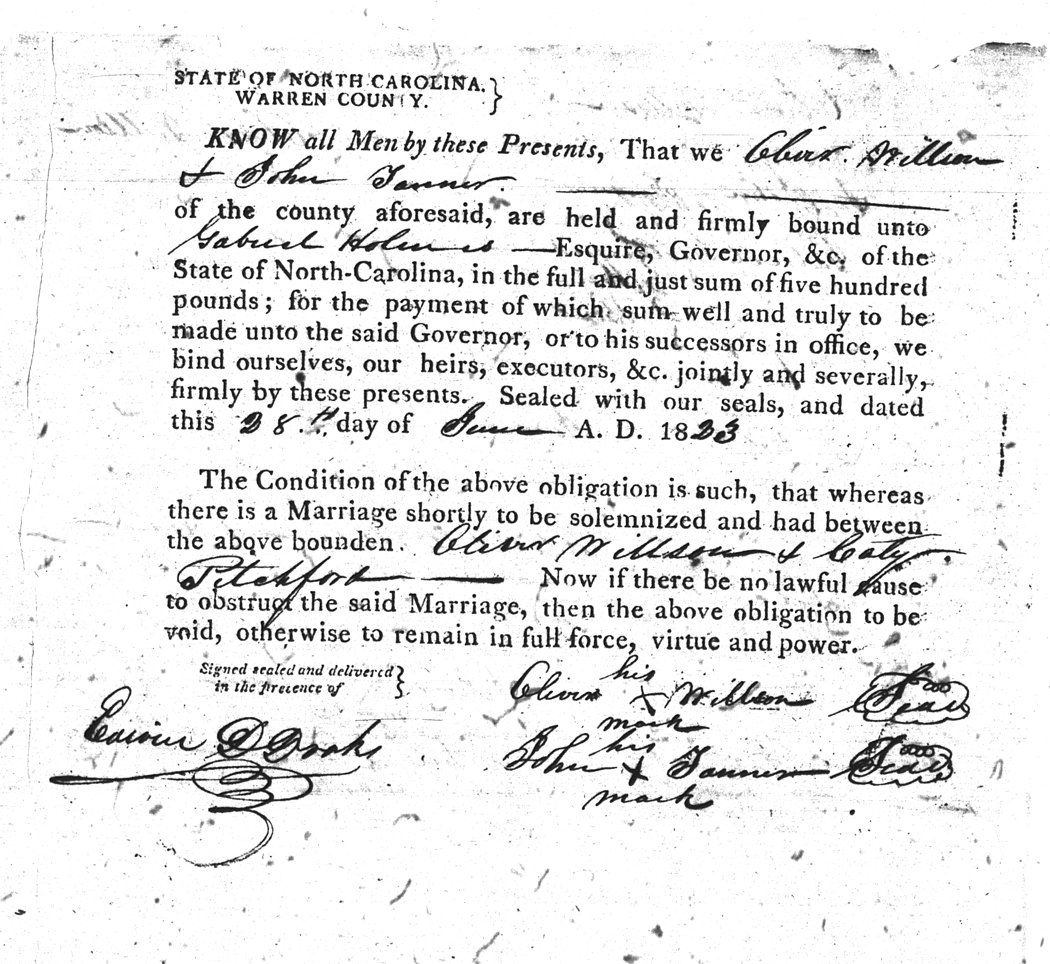 STATE OF NORTH CAROLINA, }
WARREN COUNTY.
KNOW all Men by these Presents, That we Oliver Willson
& John Tanner.
of the county aforesaid, are held and firmly bound unto
Gabriel Holmes — Esquire, Governor, &c. of the
State of North-Carolina, in the full and just sum of five hundred
pounds; for the payment of which sum well and truly to be
made unto the said Governor, or to his successors in office, we
bind ourselves, our heirs, executors, &c. jointly and severally,
firmly by these presents. Sealed with our seals, and dated
this 28.th day of June A. D. 1823
The Condition of the above obligation is such, that whereas
there is a Marriage shortly to be solemnized and had between
the above bounden. Oliver Willson & Caty
Pitchford — Now if there be no lawful cause
to obstruct the said Marriage, then the above obligation to be
void, otherwise to remain in full force, virtue and power.
Signed sealed and delivered }
in the presence of
his
Oliver X Willson Seal
mark
Edwin D Drake
his
John X Tanner Seal
mark